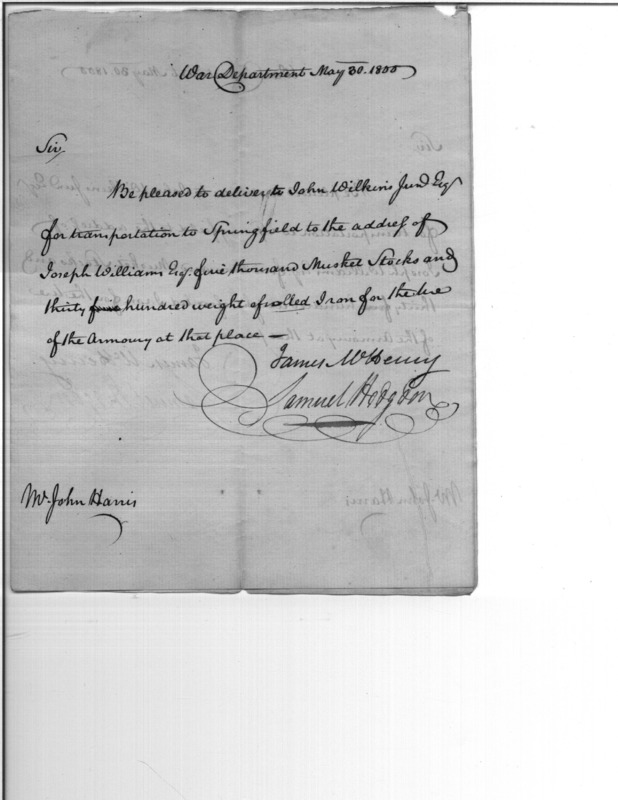 War Department May 30. 1800
Sir,
Be pleased to deliver to John Wilkins Junr Esqr
for transportation to Springfield to the address of
Joseph Williams Esq. five thousand Musket Stocks and
thirty five hundred weight of rolled Iron for the use
of the Armoury at that place —
James McHenry
Samuel Hodgdon
Mr. John Harris